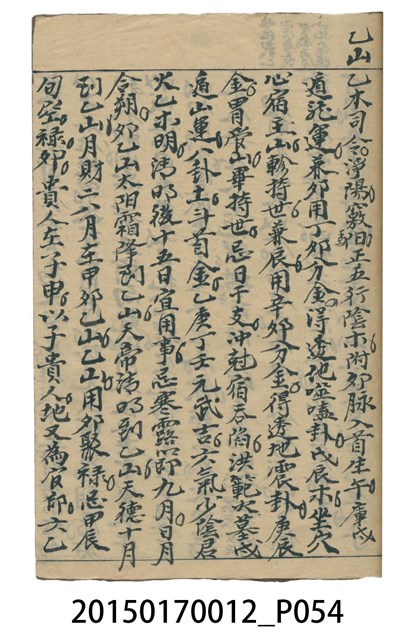 乙山乙木司令淨陽數正五行陰木附卯脉入首生午庫戌
道龍運兼卯用丁卯分金得透地噬嗑卦戊辰木坐穴
心宿主山軫持世兼辰用辛卯分金得透地震卦庚辰
金胃管山畢持世忌日干支冲尅宿吞啗洪範火墓戌
遁山運八卦土斗首金乙庚丁壬元武吉六氣少陰君
火乙木明清明後十五日宜用事忌寒露節九月日月
合朔卯乙山太陽霜降到乙山天帝清明到乙山天德十月
到乙山月財二六月在甲卯乙山乙山用卯聚祿忌甲辰
旬空祿卯貴人在子申以子貴人地又為官卽六乙
20150170012_P054